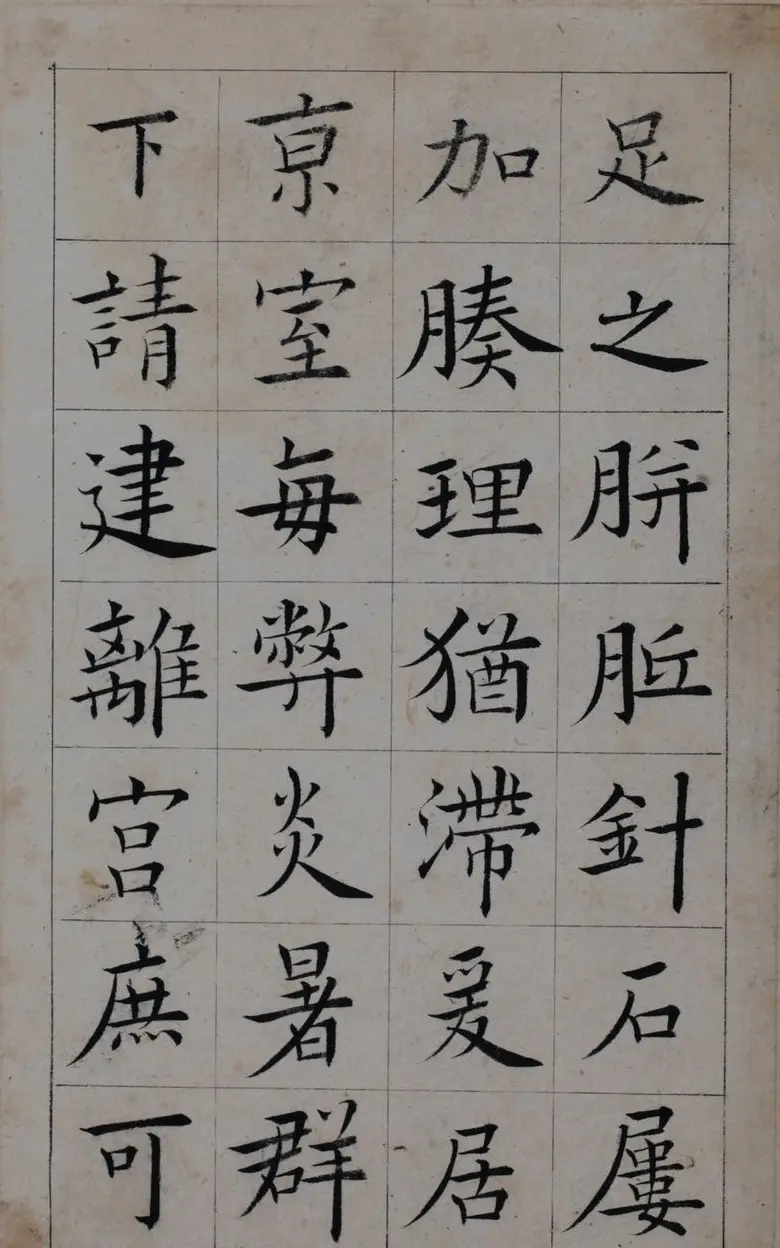 足之胼胝針石屢
加腠理猶滯爰居
京室每弊炎暑群
下請建離宮庶可